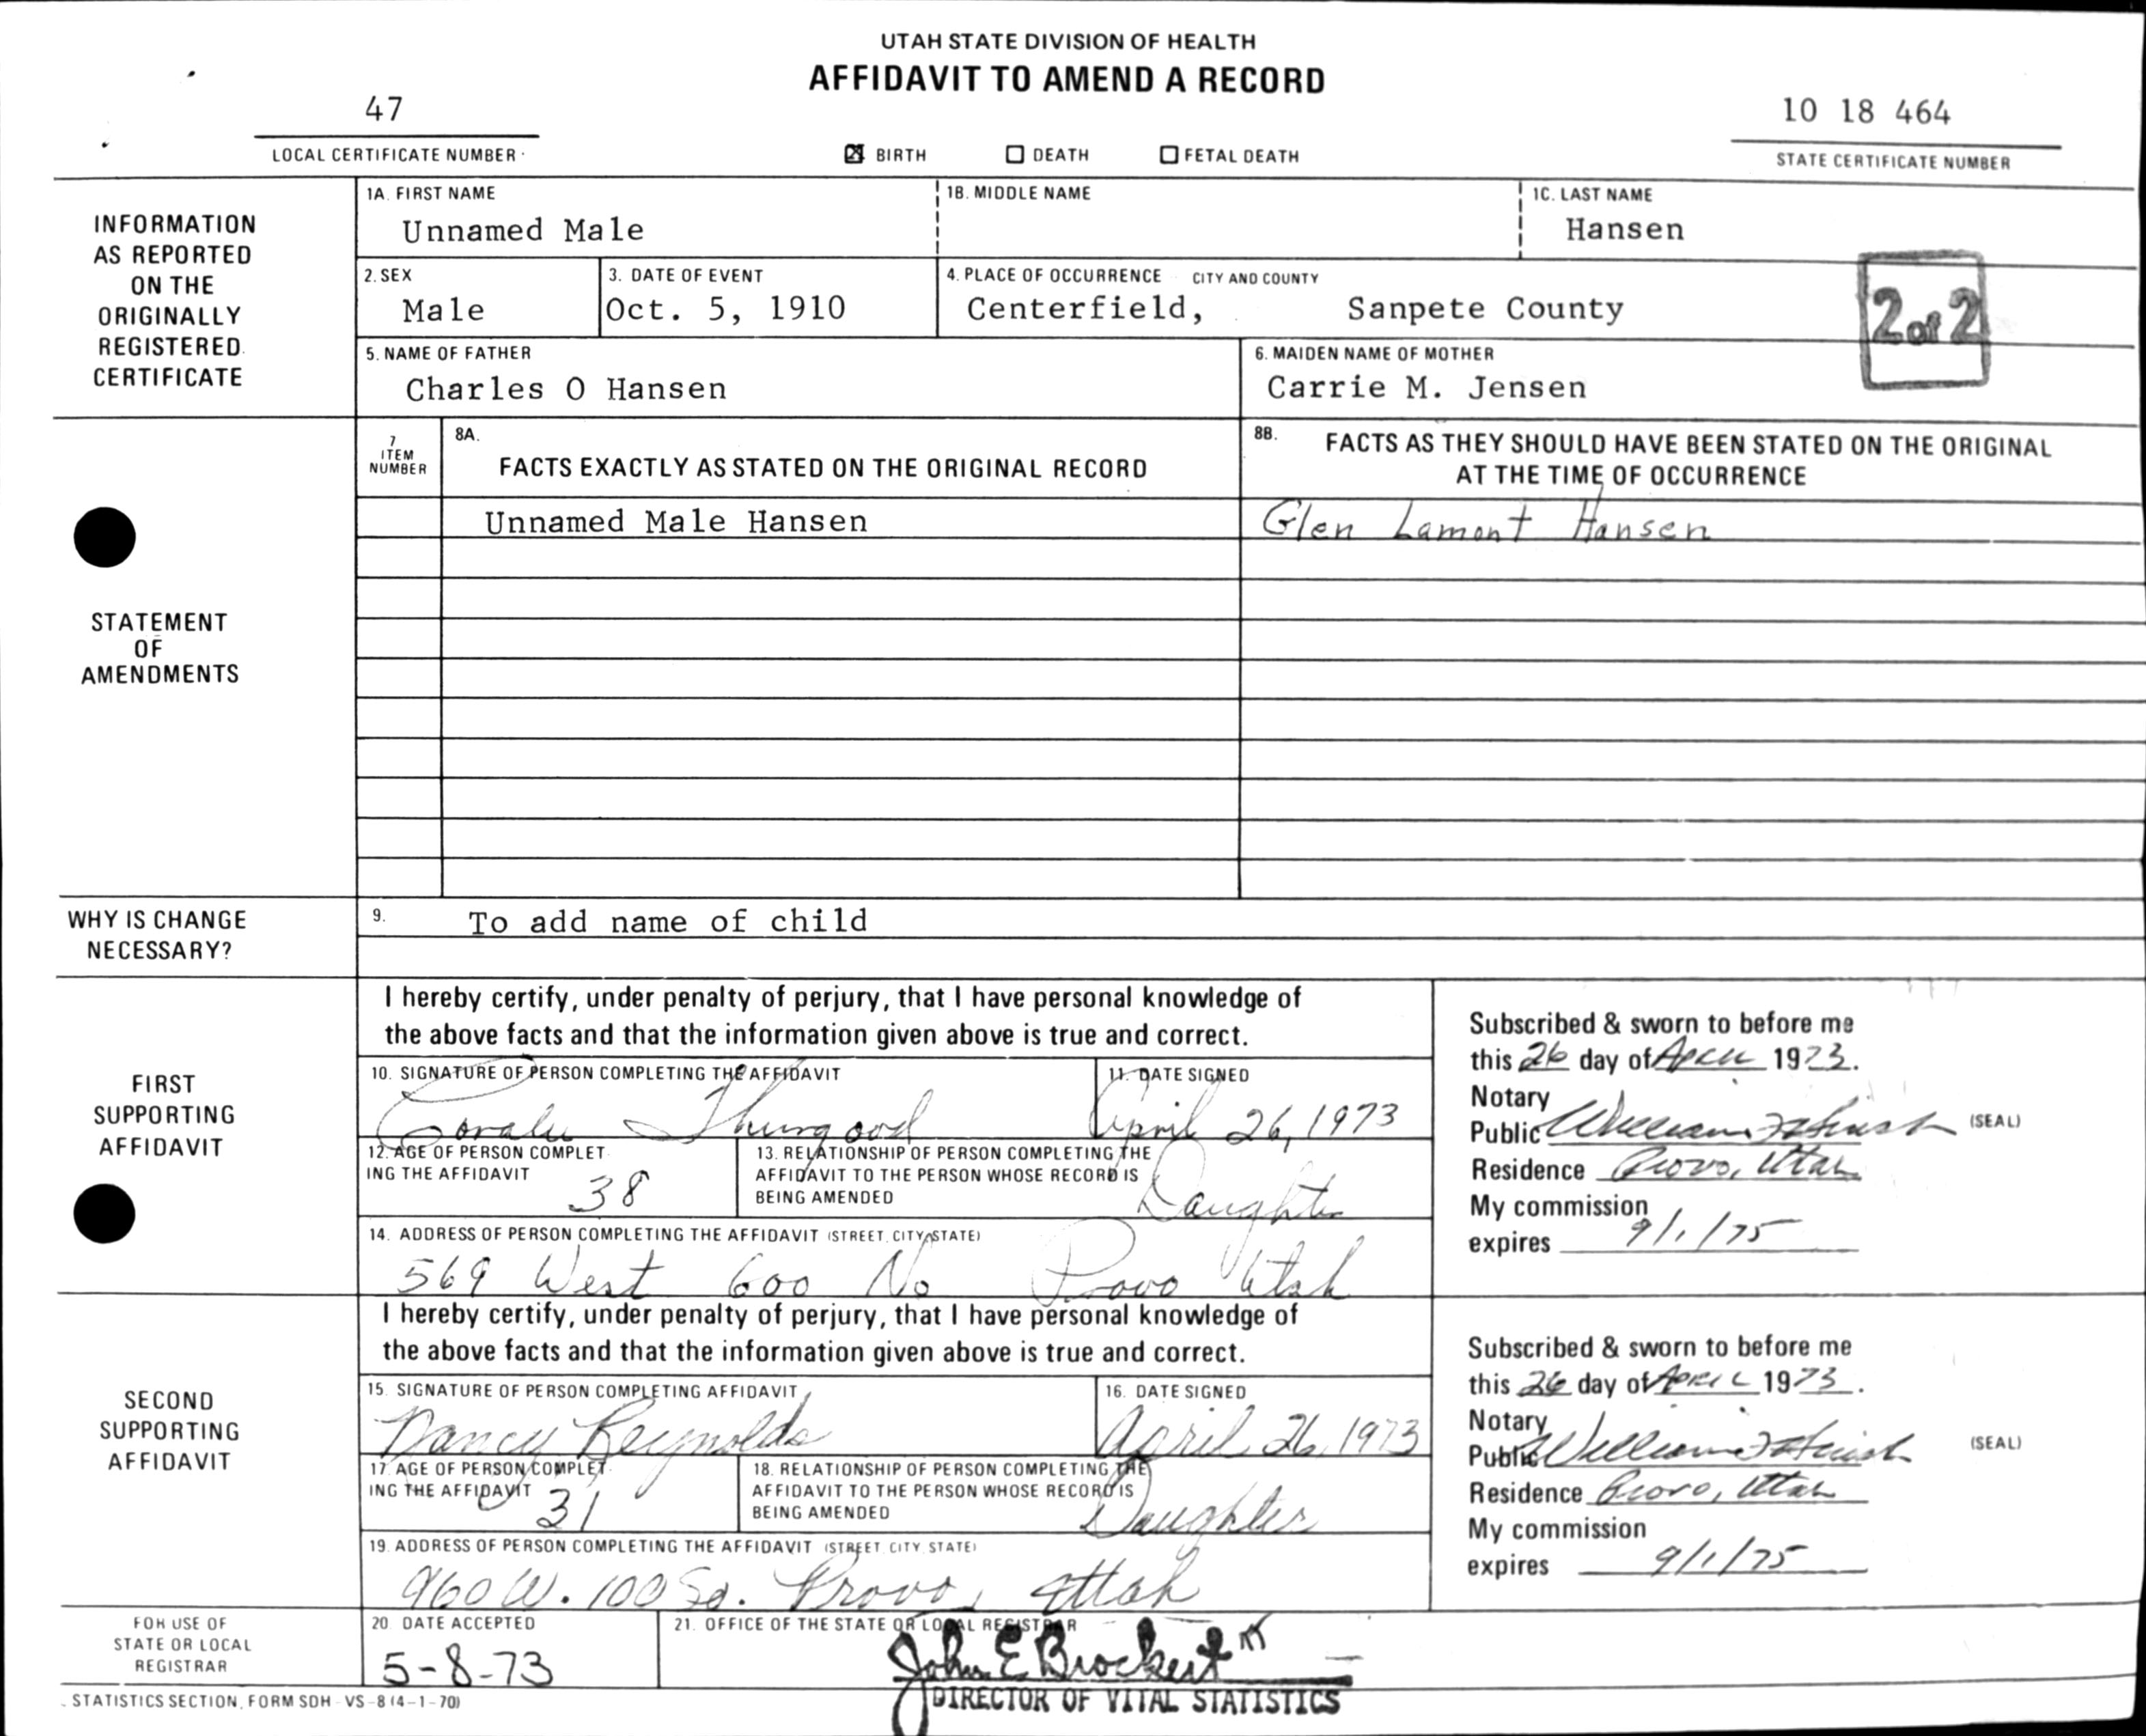 UTAH STATE DIVISION OF HEALTH
AFFIDAVIT TO AMEND A RECORD
47
LOCAL CERTIFICATE NUMBER
☒ BIRTH ☐ DEATH ☐ FETAL DEATH
10 18 464
STATE CERTIFICATE NUMBER
INFORMATION AS REPORTED ON THE ORIGINALLY REGISTERED CERTIFICATE
1A. FIRST NAME
Unnamed Male
1B. MIDDLE NAME
1C. LAST NAME
Hansen
2. SEX
Male
3. DATE OF EVENT
Oct. 5, 1910
4. PLACE OF OCCURRENCE CITY AND COUNTY
Centerfield, Sanpete County
2 of 2
5. NAME OF FATHER
Charles O Hansen
6. MAIDEN NAME OF MOTHER
Carrie M. Jensen
STATEMENT OF AMENDMENTS
7 ITEM NUMBER
8A.
FACTS EXACTLY AS STATED ON THE ORIGINAL RECORD
8B. FACTS AS THEY SHOULD HAVE BEEN STATED ON THE ORIGINAL
AT THE TIME OF OCCURRENCE
Unnamed Male Hansen
Glen Lamont Hansen
WHY IS CHANGE NECESSARY?
9. To add name of child
FIRST SUPPORTING AFFIDAVIT
I hereby certify, under penalty of perjury, that I have personal knowledge of
the above facts and that the information given above is true and correct.
10. SIGNATURE OF PERSON COMPLETING THE AFFIDAVIT
Thurgood
11. DATE SIGNED
April 26, 1973
12. AGE OF PERSON COMPLET
ING THE AFFIDAVIT
38
13. RELATIONSHIP OF PERSON COMPLETING THE
AFFIDAVIT TO THE PERSON WHOSE RECORD IS
BEING AMENDED
Daughter
14. ADDRESS OF PERSON COMPLETING THE AFFIDAVIT (STREET, CITY, STATE)
569 West 600 No Provo Utah
Subscribed & sworn to before me
this 26 day of April 1973.
Notary
Public William (SEAL)
Residence Provo, Utah
My commission
expires 9/1/75
SECOND SUPPORTING AFFIDAVIT
I hereby certify, under penalty of perjury, that I have personal knowledge of
the above facts and that the information given above is true and correct.
15. SIGNATURE OF PERSON COMPLETING AFFIDAVIT
Nancy Reynolds
16. DATE SIGNED
April 26, 1973
17. AGE OF PERSON COMPLET
ING THE AFFIDAVIT
31
18. RELATIONSHIP OF PERSON COMPLETING THE
AFFIDAVIT TO THE PERSON WHOSE RECORD IS
BEING AMENDED
Daughter
19. ADDRESS OF PERSON COMPLETING THE AFFIDAVIT (STREET, CITY, STATE)
960 W. 100 So. Provo, Utah
Subscribed & sworn to before me
this 26 day of April 1973.
Notary
Public William (SEAL)
Residence Provo, Utah
My commission
expires 9/1/75
FOR USE OF STATE OR LOCAL REGISTRAR
20 DATE ACCEPTED
5-8-73
21. OFFICE OF THE STATE OR LOCAL REGISTRAR
John E Brockert
DIRECTOR OF VITAL STATISTICS
STATISTICS SECTION, FORM SDH-VS-8 (4-1-70)